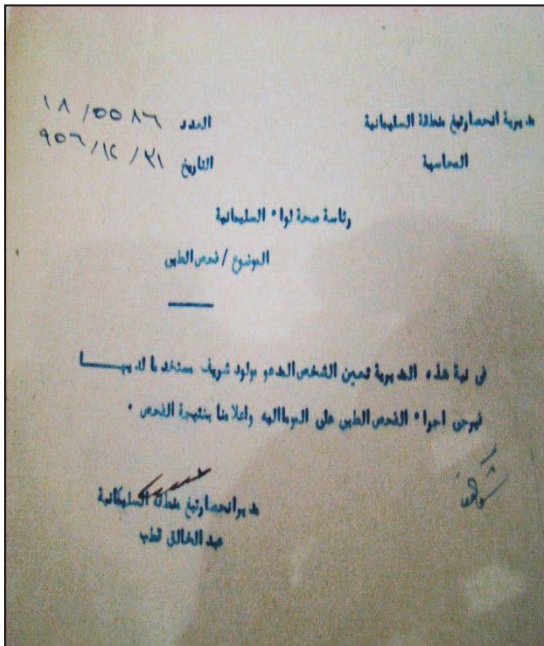 مديرية انحصار تبغ منطقة السليمانية
العدد ١٨/٥٥٨٦
المحاسبة
التاريخ ٩٥٦/١٢/٣١
رئاسة صحة لواء السليمانية
الموضوع / فحص الطبي
في نية هذه المديرية تعين الشخص المدعو مولود شريف مستخدما لديهــا
فيرجى اجراء الفحص الطبي على الموما اليه واعلامنا بنتيجة الفحص ٠
مدير انحصار تبغ منطقة السليمانية
عبد الخالق قطب